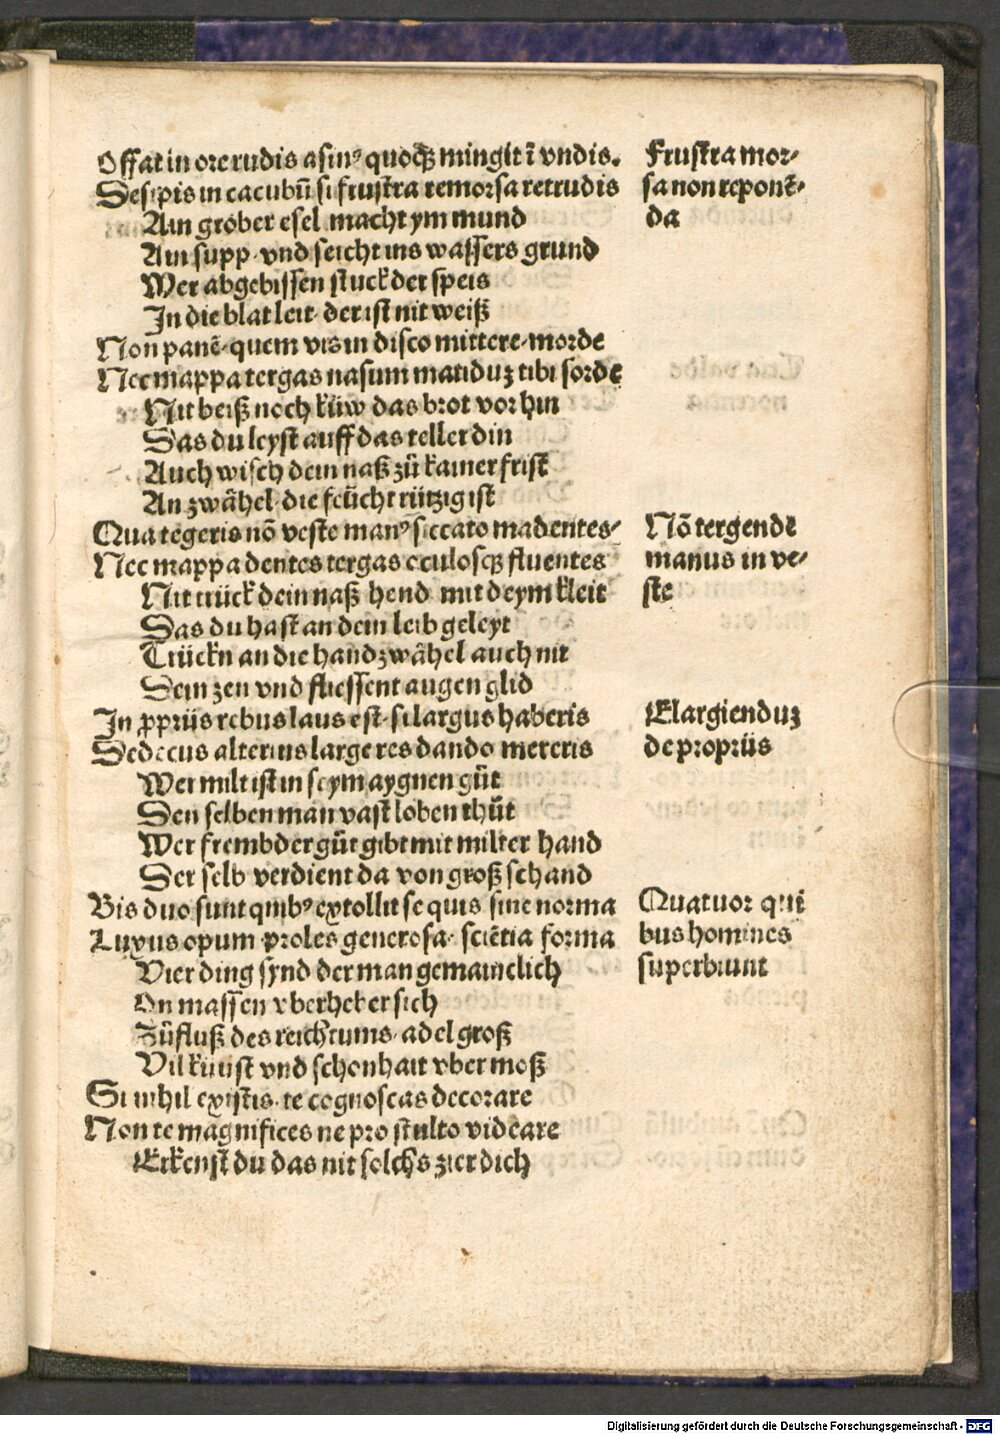 Offat in ore rudis asin⁹ quoqꝫ mingit ī vndis.
Desipis in cacubū si frustra remorsa retrudis
Ain grober esel macht ym mund
Ain supp vnd seicht ins wassers grund
Wer abgebissen stuck der speis
In die blat leit der ist nit weiß
Non panē quem vis in disco mittere morde
Nec mappa tergas nasum matiduꝫ tibi sorde
Nit beiß noch küw das brot vorhin
Das du leyst auff das teller din
Auch wisch dein naß zů kainer frist
An zwåhel die feücht rützig ist
Qua tegeris nō veste man⁹ siccato madentes
Nec mappa dentes tergas oculosqꝫ fluentes
Nit trück dein naß hend mit deym kleit
Das du hast an dein leib geleyt
Trückn an die handzwåhel auch nit
Dein zen vnd fliessent augen glid
In ꝓpriis rebus laus est si largus haberis
Dedecus alterius large res dando mereris
Wer milt ist in seym aygnen gůt
Den selben man vast loben thůt
Wer frembder gůt gibt mit milter hand
Der selb verdient da von groß schand
Bis duo sunt quib⁹ extollit se quis sine norma
Luxus opum proles generosa sciētia forma
Vier ding synd der man gemainclich
On massen vberheber sich
Zůfluß des reichtums adel groß
Vil kunst vnd schonhait vber moß
Si nihil existis te cognoscas decorare
Non te magnifices ne pro stulto videare
Erkenst du das nit solchs zier dich
Frustra mor-
sa non reponē-
da
Nō tergende
manus in ve-
ste
Elargienduꝫ
de propriis
Quatuor qui
bus homines
superbiunt
Digitalisierung gefördert durch die Deutsche Forschungsgemeinschaft - DFG